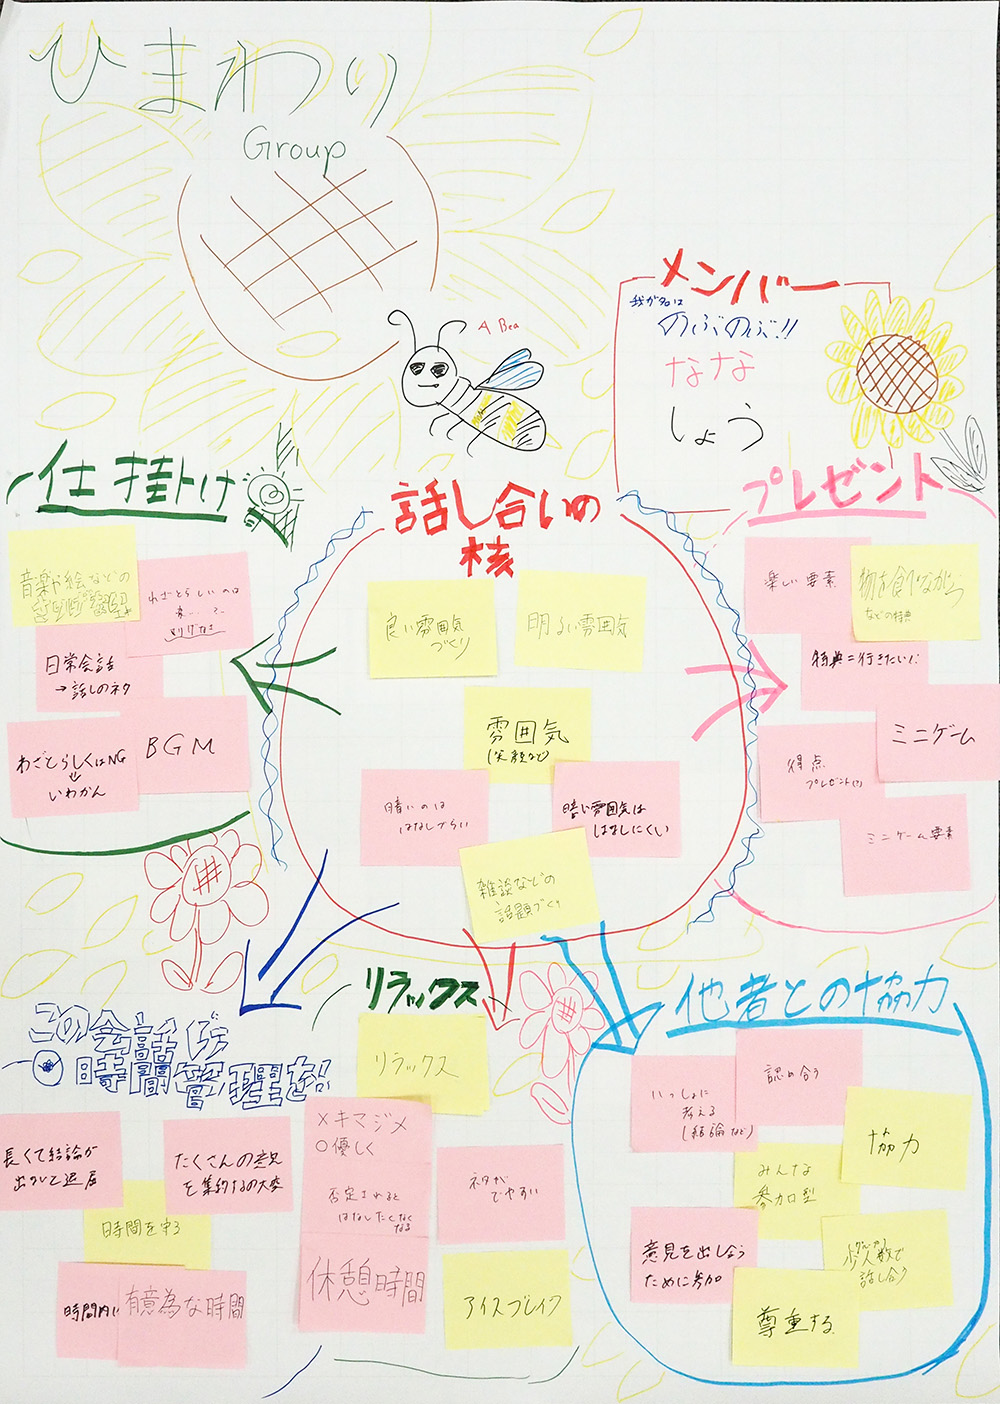 ひまわり
Group
A Bea
メンバー
我が名は
のぶのぶ!!
なな
しょう
仕掛け
音楽や絵などの
わざとらしいのは
日常会話
→話しのネタ
わざとらしくはNG
いわかん
BGM
話し合いの
核
良い雰囲気
づくり
明るい雰囲気
雰囲気
(笑顔など)
暗いのは
はなしづらい
暗い雰囲気は
はなしにくい
雑談などの
話題づくり
プレゼント
楽しい要素
物を食べながら
などの特典
特典=行きたい!
ミニゲーム
得点
プレゼント(?)
ミニゲーム要素
この会話
時間管理を!
長くて結論が
出ないと退屈
たくさんの意見
を集約するの大変
時間を守る
時間内に
有意為な時間
リラックス
リラックス
×キマジメ
○優しく
否定されると
はなしたくなく
なる
ネタが
でやすい
休憩時間
アイスブレイク
他者との協力
いっしょに
考える
(結論など)
認め合う
協力
みんな
参加型
意見を出し合う
ために参加
少人数で
話し合う
尊重する